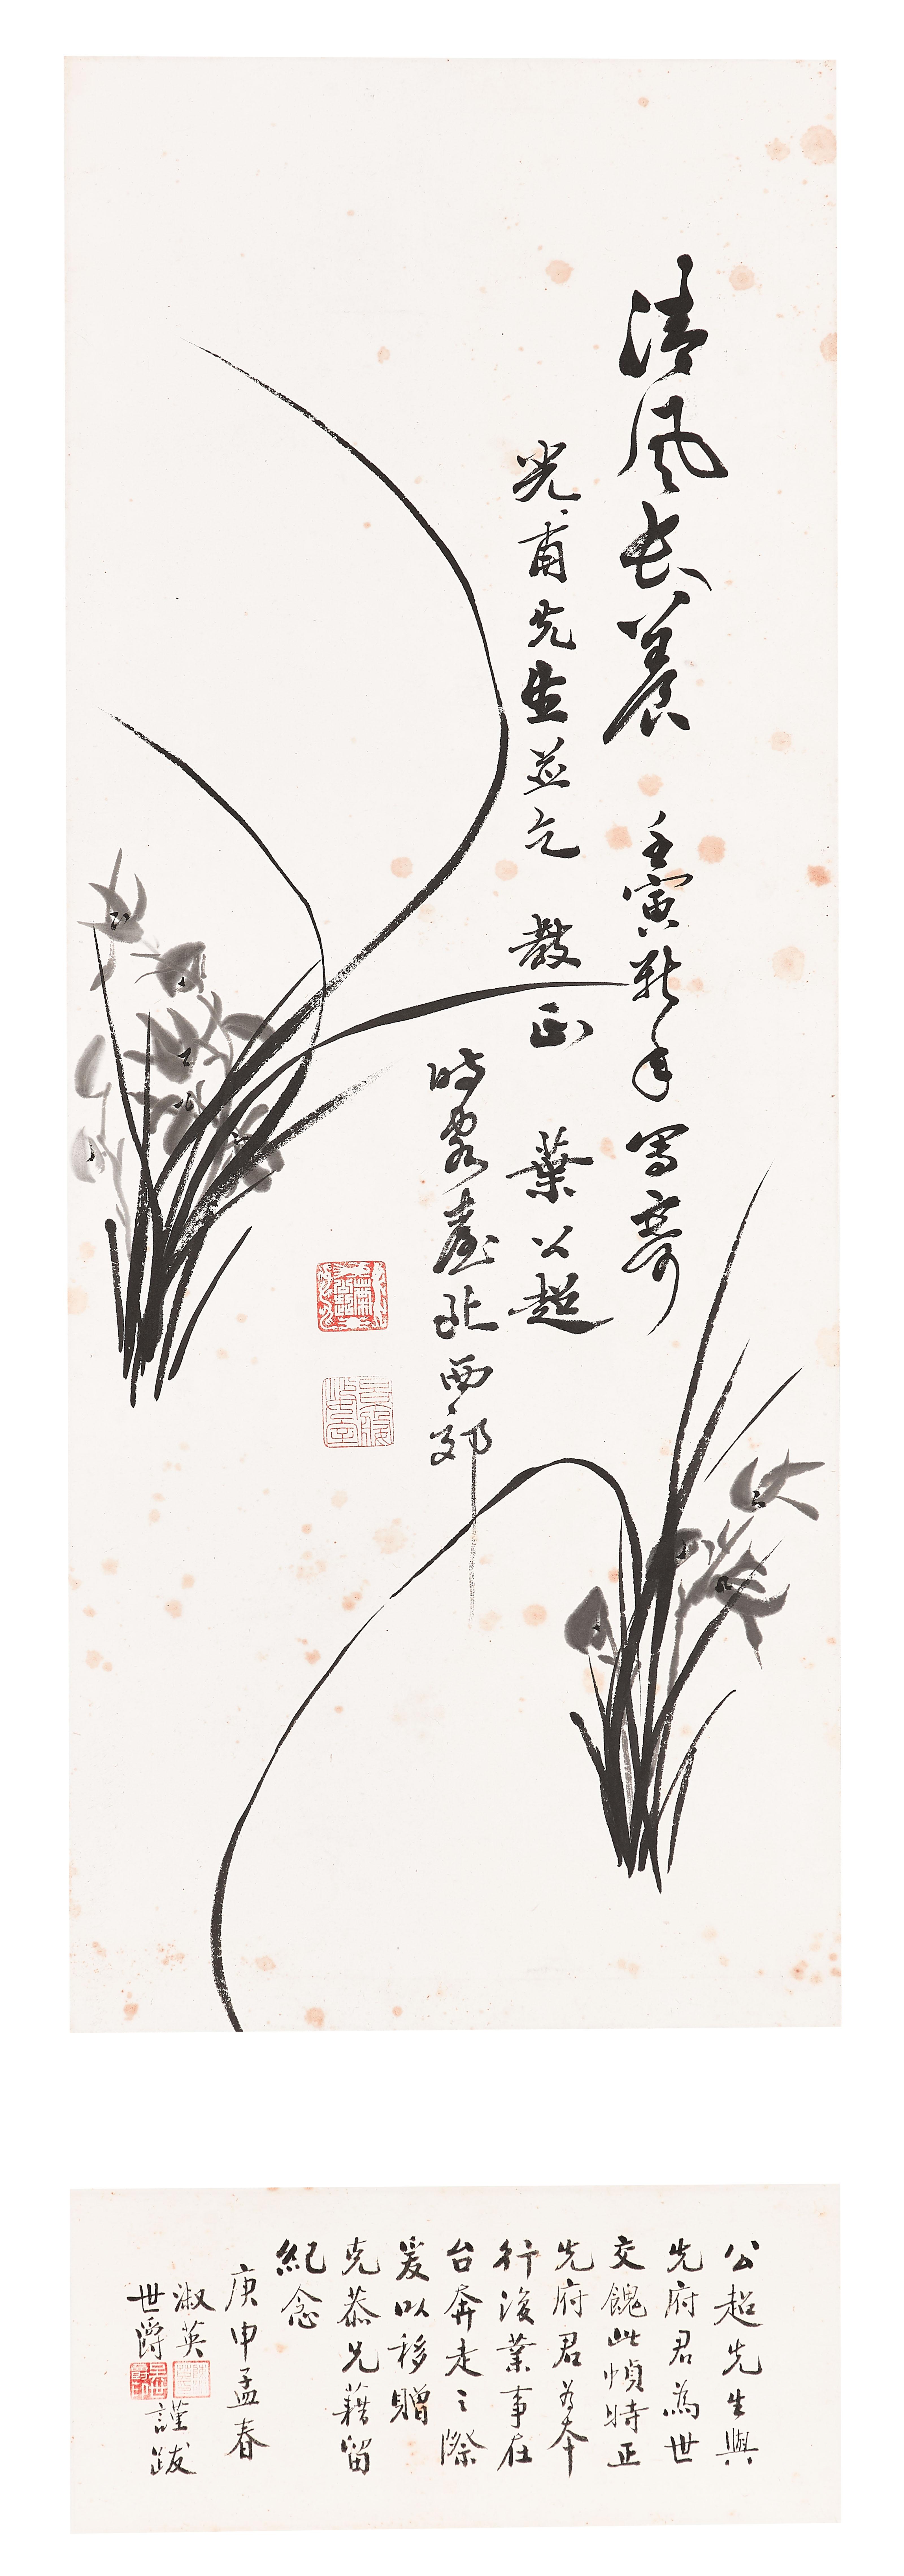 清風長養 壬寅新年寫寄
光甫先生並乞 教正 葉公超
時客臺北西郊
公超先生與
先府君為世
交餽此幀時正
先府君為本
行復業事在
台奔走之際
爰以移贈
克恭兄藉留
紀念
庚申孟春
淑英
世爵
謹跋